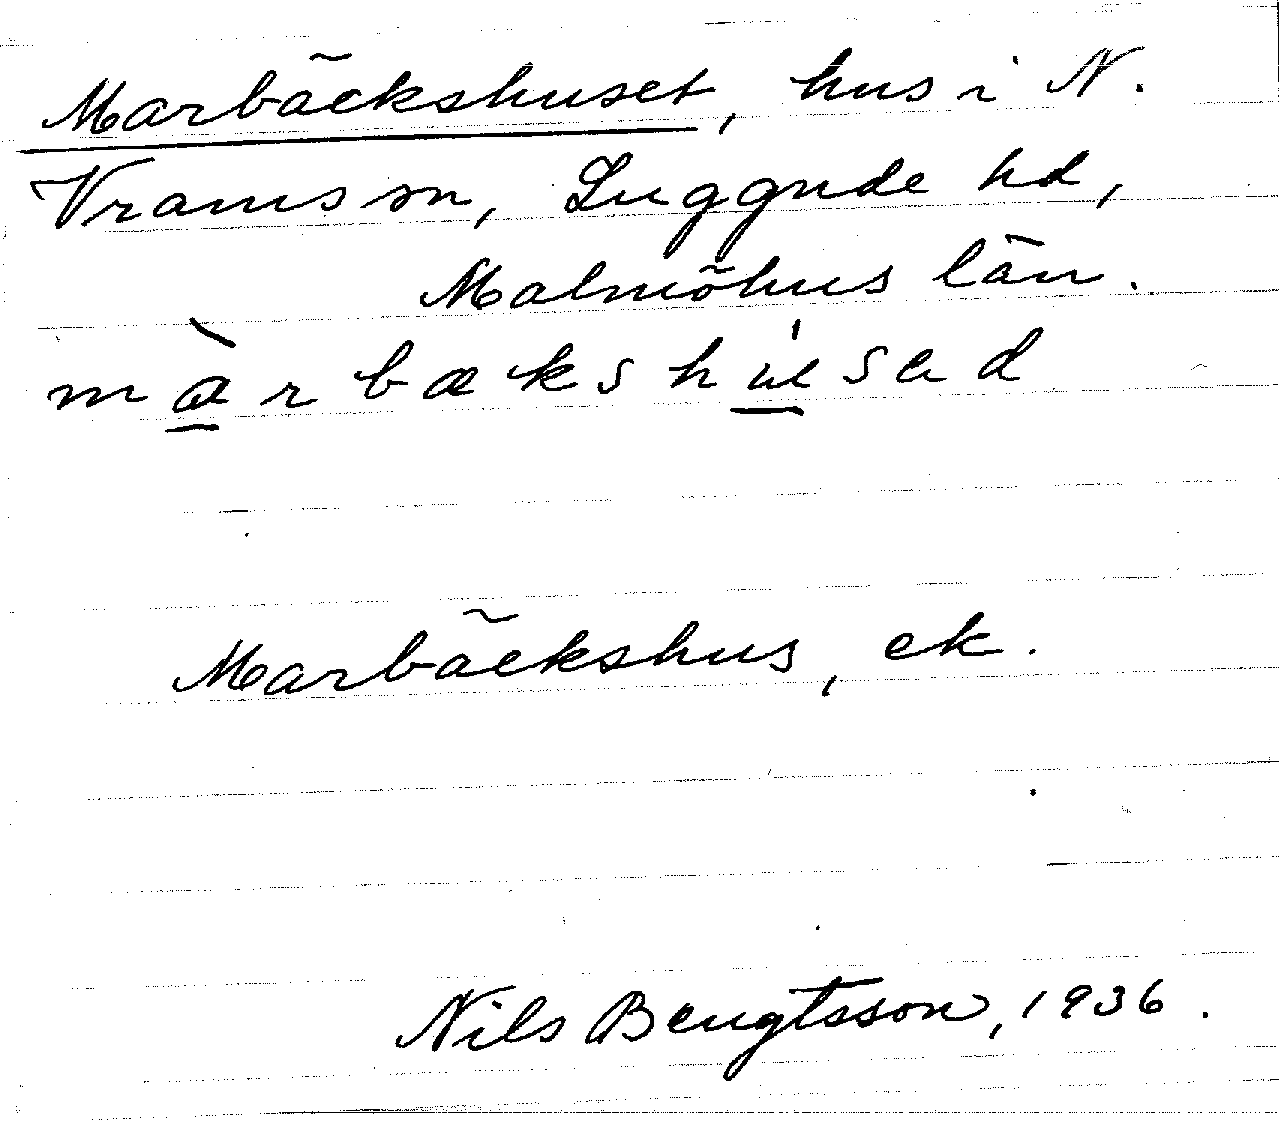 Marbäckshuset, hus i N.
Vrams sn, Luggude hd,
Malmöhus län.
màrbækshúsed
Marbäckshus, ek.
Nils Bengtsson, 1936.